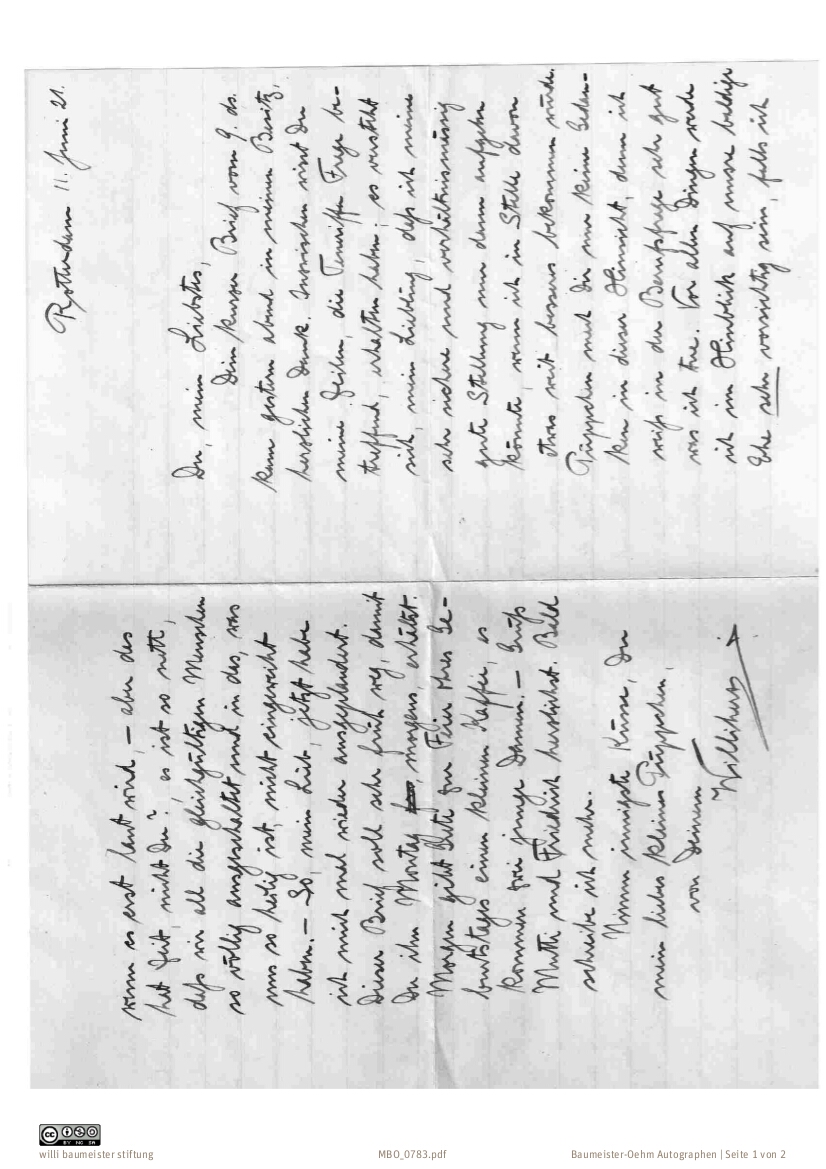 Rotterdam 11. Juni 21.
Du, mein Liebstes,
Dein kurzer Brief vom 9. ds.
kam gestern abend in meinen Besitz,
herzlichen Dank. Inzwischen wirst Du
meine Zeilen, die Teneriffa Frage be-
treffend, erhalten haben; es versteht
sich, mein Liebling, daß ich meine
sehr sichere und verhältnismässig
gute Stellung nur dann aufgeben
könnte, wenn ich in Stelle davon
etwas weit besseres bekommen würde.
Püppchen mach Dir nur keine Gedan-
ken in dieser Hinsicht, denn ich
weiß in der Berufsfrage sehr gut
was ich tue. Vor allen Dingen werde
ich im Hinblick auf unsere baldige
Ehe sehr vorsichtig sein, falls ich
wenn es erst laut wird, – aber das
hat Zeit, nicht Du? es ist so nett,
daß wir all die gleichgültigen Menschen
so völlig ausgeschaltet und in das, was
uns so heilig ist, nicht eingeweiht
haben. – So, mein Lieb, jetzt habe
ich mich mal wieder ausgeplaudert.
Dieser Brief soll sehr früh weg, damit
Du ihn Montag morgens erhältst.
Morgen gibt zur Feier ihres Ge-
burtstages einen kleinen Kaffee, es
kommen zwei junge Damen. – Grüß
Mutti und Friedrich herzlichst. Bald
schreibe ich mehr.
Nimm innigste Küsse, Du
mein liebes kleines Püppchen,
von Deinem
Willihans
willi baumeister stiftung
MBO_0783.pdf
Baumeister-Oehm Autographen | Seite 1 von 2